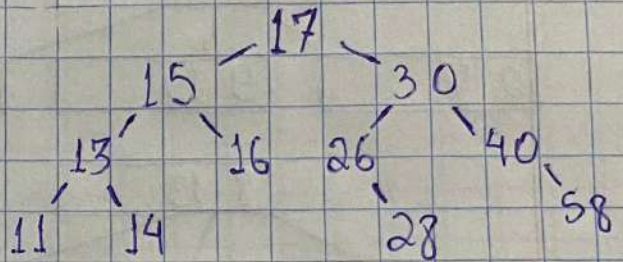 17
15 30
13 16 26 40
11 14 28 58